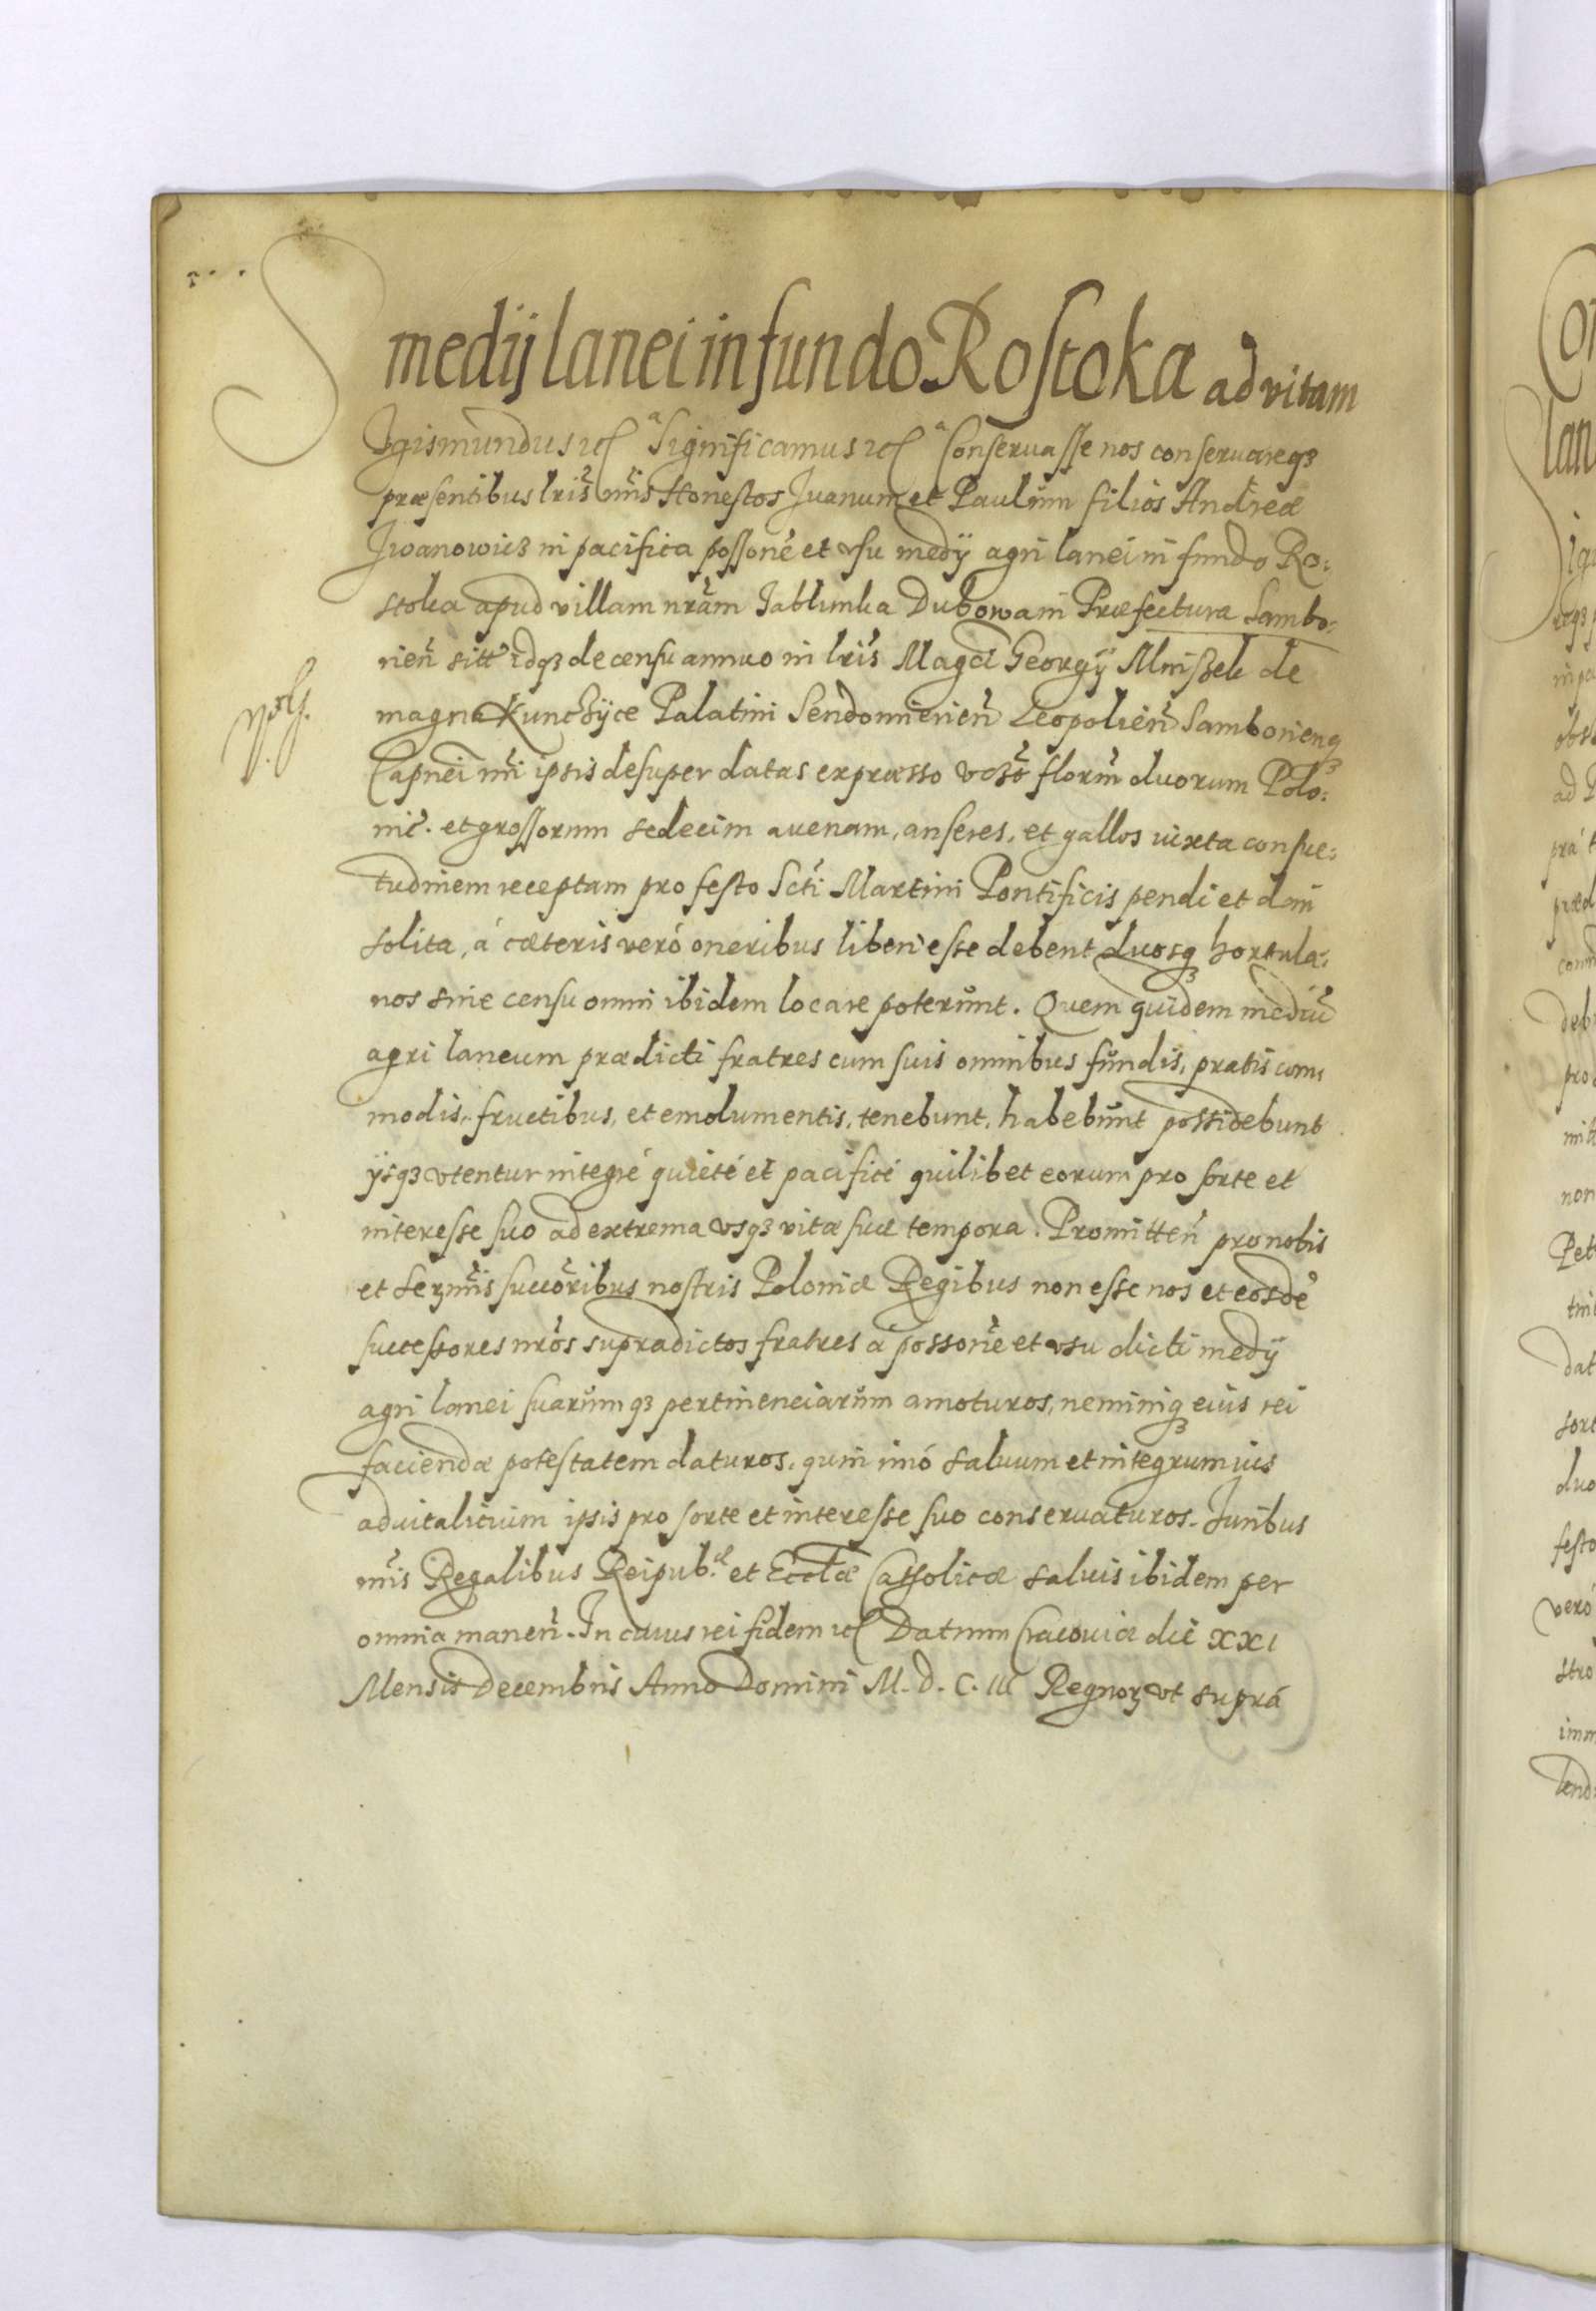 medij lanei in fundo Rostoka ad vitam
Sigismundus etc Significamus etc Conseruasse nos conseruareqꝫ
præsentibus lris nris Honestos Iuanum et Paulum filios Andreæ
Iwanowicz in pacifica possone et vsu medij agri lanei in fundo Ro:
stoka apud villam nram Jablunka Dubowa in Præfectura Sambo:
rien sitt idqꝫ de census annuo in lris Magci Georgij Mniszek de
magna Kunczyce Palatini Sendomirien Leopolien Samborienqꝫ
Capnei nri ipsis desuper datas expresso vcꝫ floru duorum Polo:
nic. et grossorum sedecim auenam, anseres, et gallos iuxta consue:
tudinem receptam pro festo Scti Martini Pontificis pendi et dari
solita, á cæteris veró oneribus liberi esse debent duosqꝫ hortula:
nos sine censu omni ibidem locare poterunt. Quem quidem mediu
agri laneum prædicti fratres cum suis omnibus fundis, pratis com:
modis, fructibus, et emolumentis, tenebunt, habebunt possidebunt
ijsqꝫ vtentur integré quieté et pacificé quilibet eorum pro sorte et
interesse suo ad extrema vsqꝫ vitæ suæ tempora. Promitten pro nobis
et Serꝫmis succoribus nostris Poloniæ Regibus non esse nos et eosde
successores nros supradictos fratres á possone et vsu dicti medij
agri lanei suarumqꝫ pertinenciarum amoturos, neminiqꝫ eius rei
faciendæ potestatem daturos, quin imó saluum et integrum ius
aduitalitium ipsis pro sorte et interesse suo conseruaturos. Iuribus
nris Regalibus Reipub. et Ecclæ Catholicæ saluis ibidem per
omnia manen. In cuius rei fidem etc Datum Cracouiæ die XXI
Mensis Decembris Anno Domini M. D. C. III Regnorꝫ vt suprá